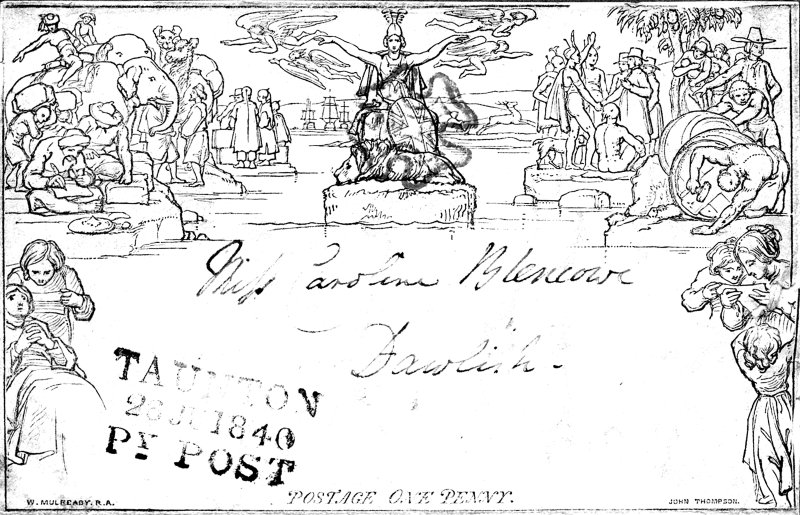 Miss Caroline Blencowe
Dawlish.
TAUNTON
28 JY 1840
PY POST
POSTAGE ONE PENNY.
W. MULREADY. R.A.
JOHN THOMPSON.